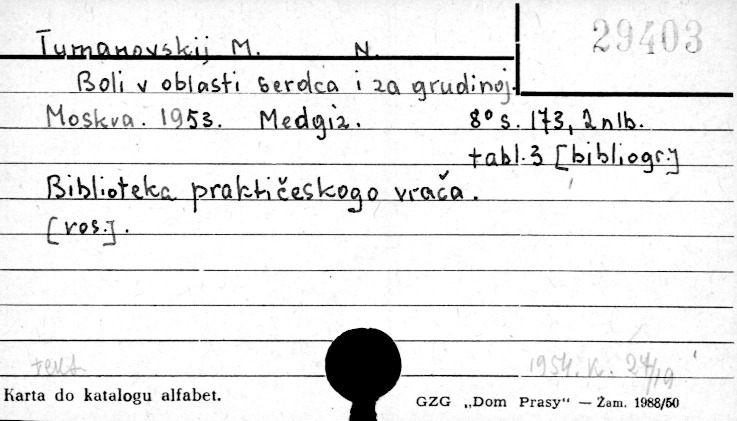 29403
Tumanovskij M. N.
Boli v oblasti serdca i za grudinoj.
Moskva. 1953. Medgiz. 8° s. 173, 2 nlb.
tabl. 3 [bibliogr.]
Biblioteka praktičeskogo vrača.
[ros.].
1954. K. 24/19
Karta do katalogu alfabet.
GZG „Dom Prasy" — Zam. 1988/50